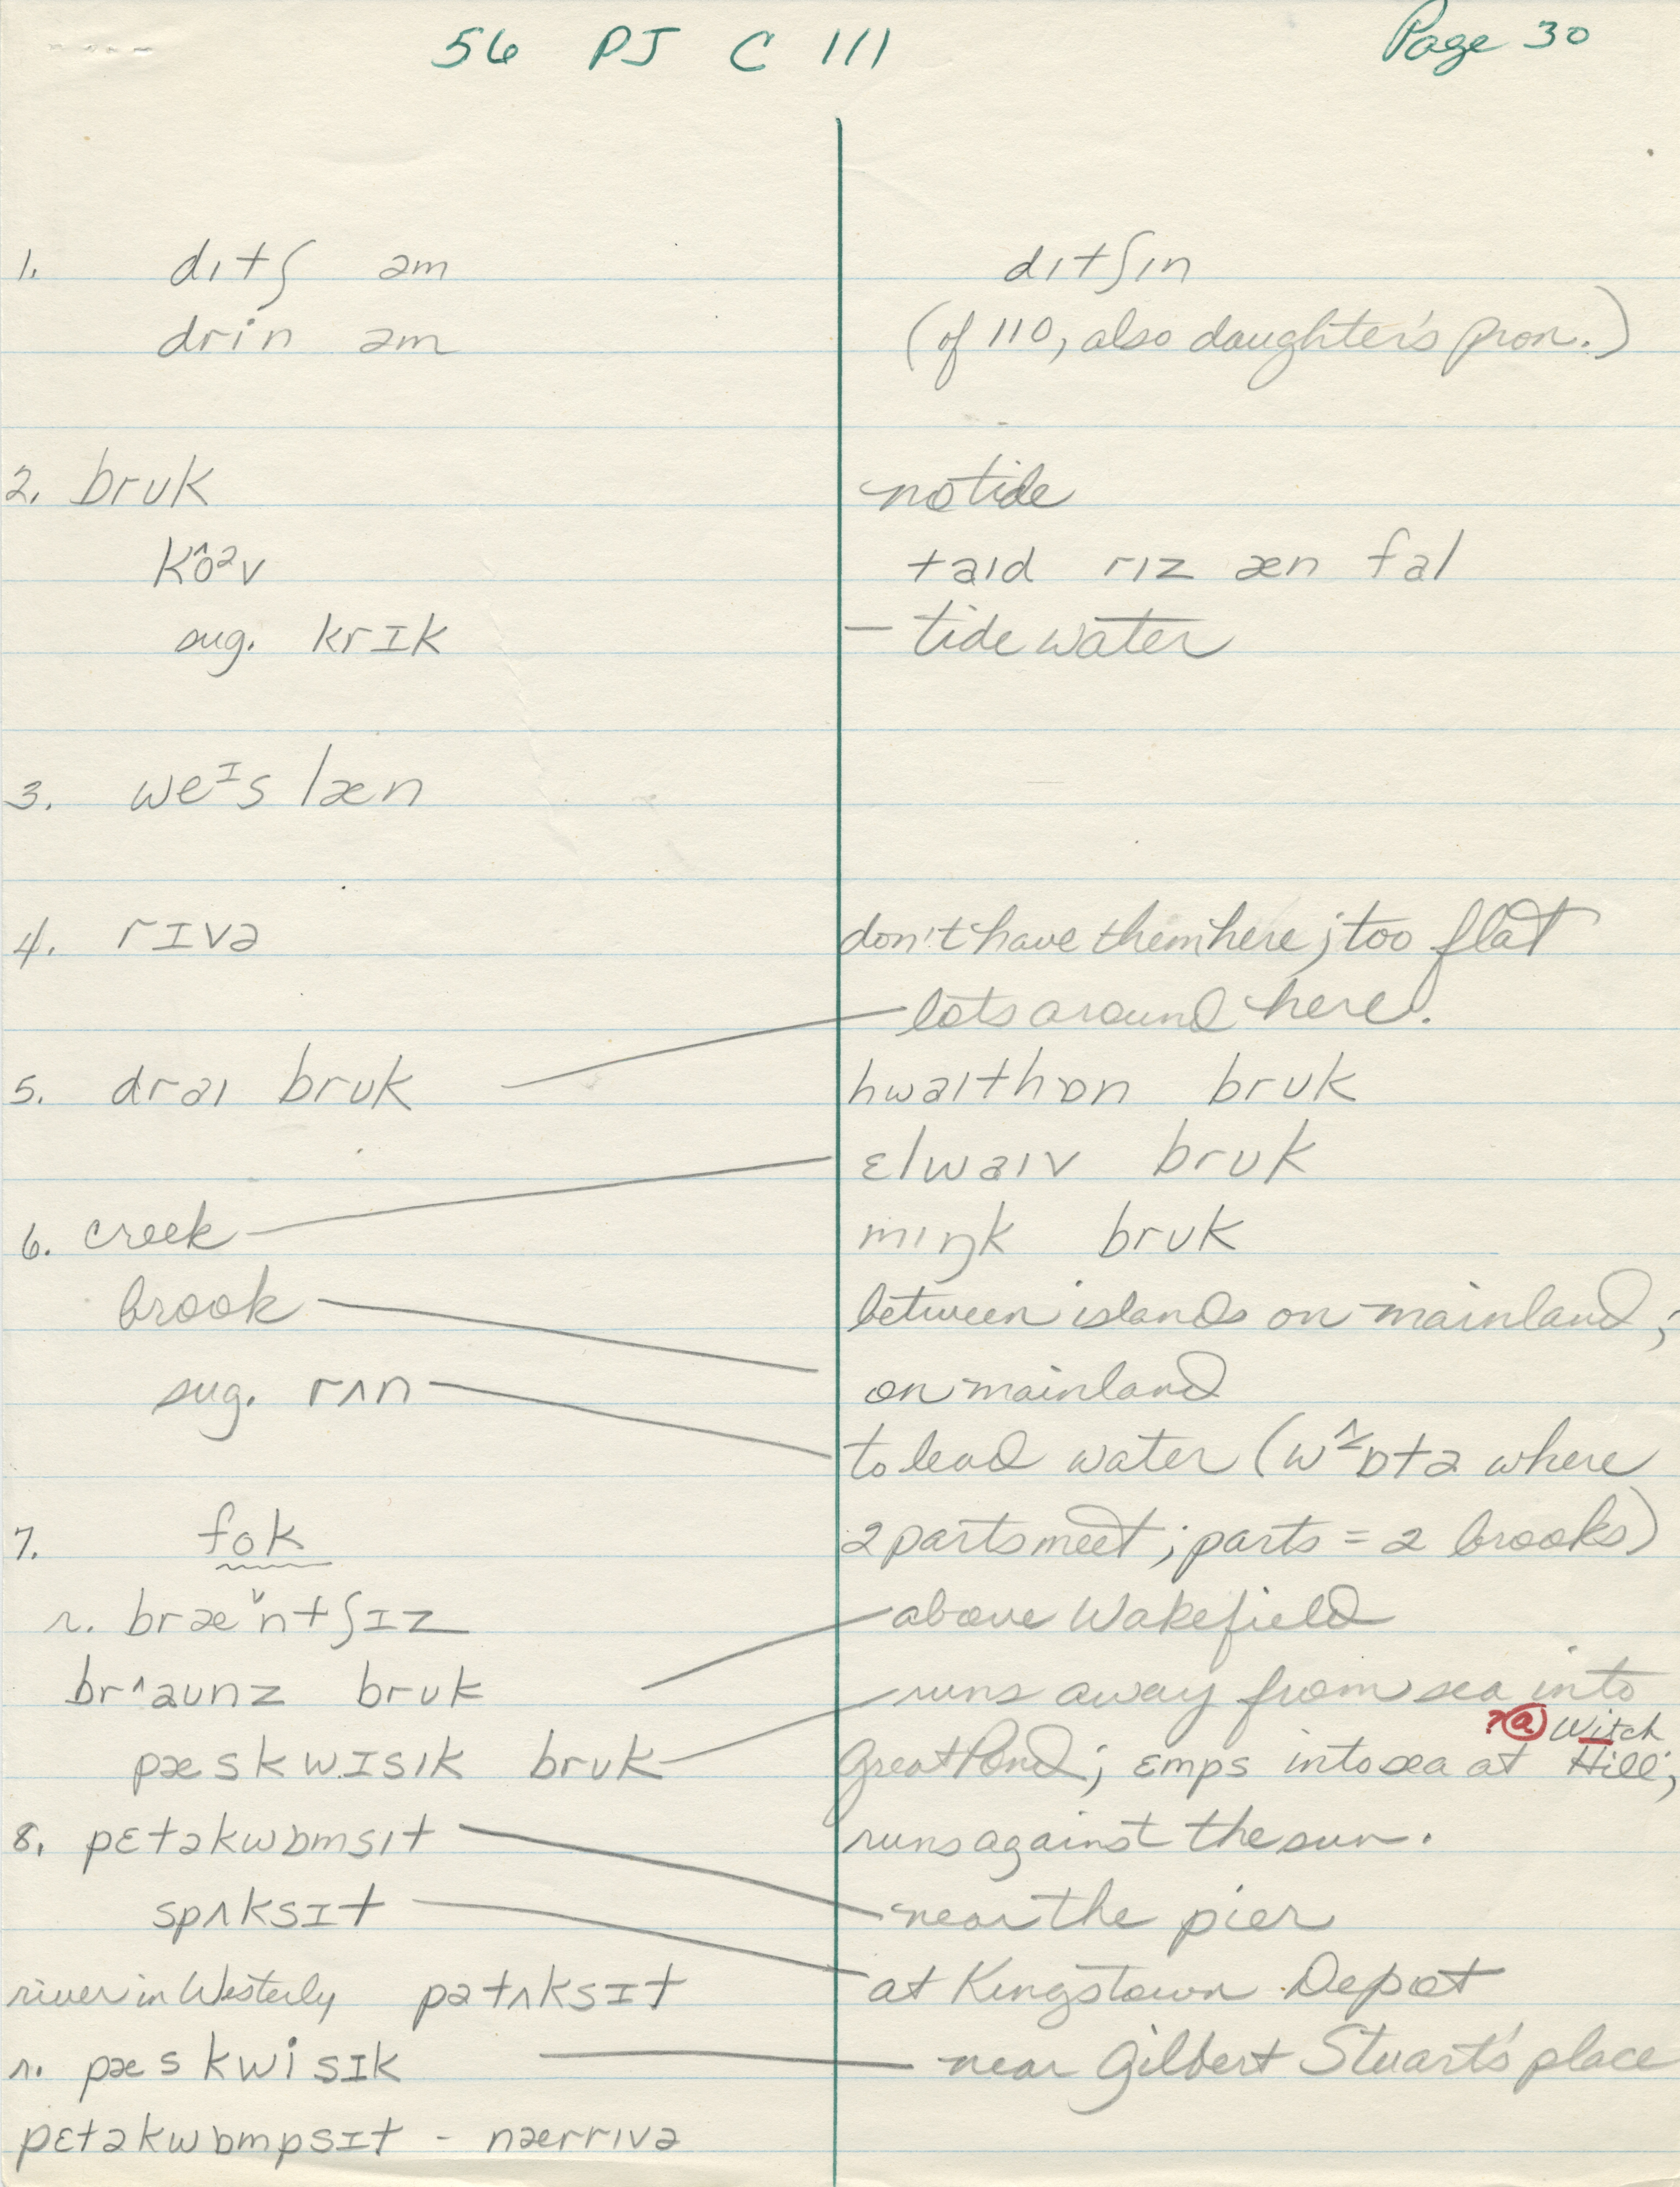 56 PJ C 111
Page 30
1. dıtʃ əm
dıtʃın
drin əm
(of 110, also daughter's pron.)
2. brʊk
no tide
kô^əv
taıd rız æn fal
sug. krIk
— tide water
3. we^Is læn
4. rIvə
don't have them here; too flat
lots around here.
5. draı brʊk
hwaıthɒn brʊk
ɛlwaıv brʊk
6. creek
mıŋk brʊk
brook
between islands on mainland;
sug. rʌn
on mainland
to lead water (w ɒtə where
7. fok
2 parts meet; parts = 2 brooks)
r. bræˇntʃIz
above Wakefield
br^aʊnz brʊk
runs away from sea into
?ⓐ Witch
pæskwIsık brʊk
Great Pond; ɛmps into sea at Hill;
8. pɛtəkwɒmsıt
runs against the sun.
spʌksIt
near the pier
river in Westerly pətʌksIt
at Kingstown Depot
r. pæskwisIk
near Gilbert Stuart's place
pɛtəkwɒmpsIt - nærrıvə